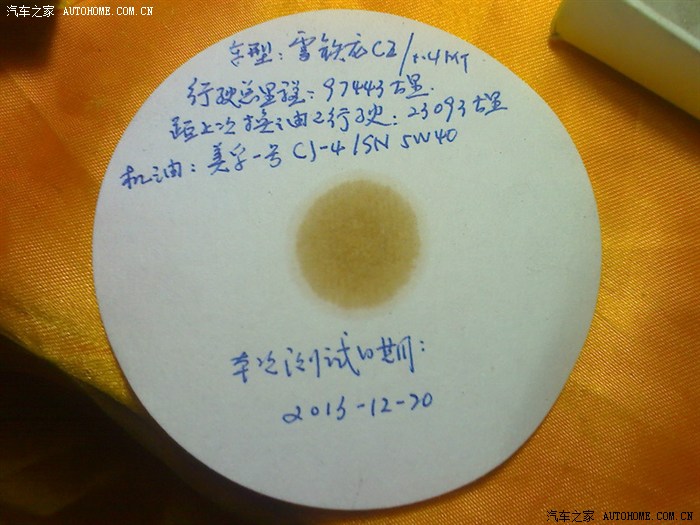 汽车之家 AUTOHOME.COM.CN
车型：雪铁龙C2/1.4MT
行驶总里程：97443公里
距上次换油已行驶：23093公里
机油：美孚一号 CJ-4/SN 5W40
本次测试日期：
2013-12-20
汽车之家 AUTOHOME.COM.CN